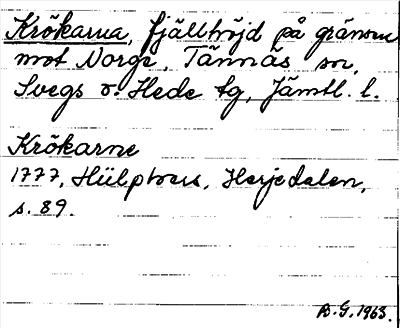 Krökarna, fjällhöjd på gränsen
mot Norge, Tännäs sn,
Svegs o. Hede tg, Jämtl. l.
Krökarne
1777, Hülphers, Herjedalen,
s. 89.
B.G. 1963.